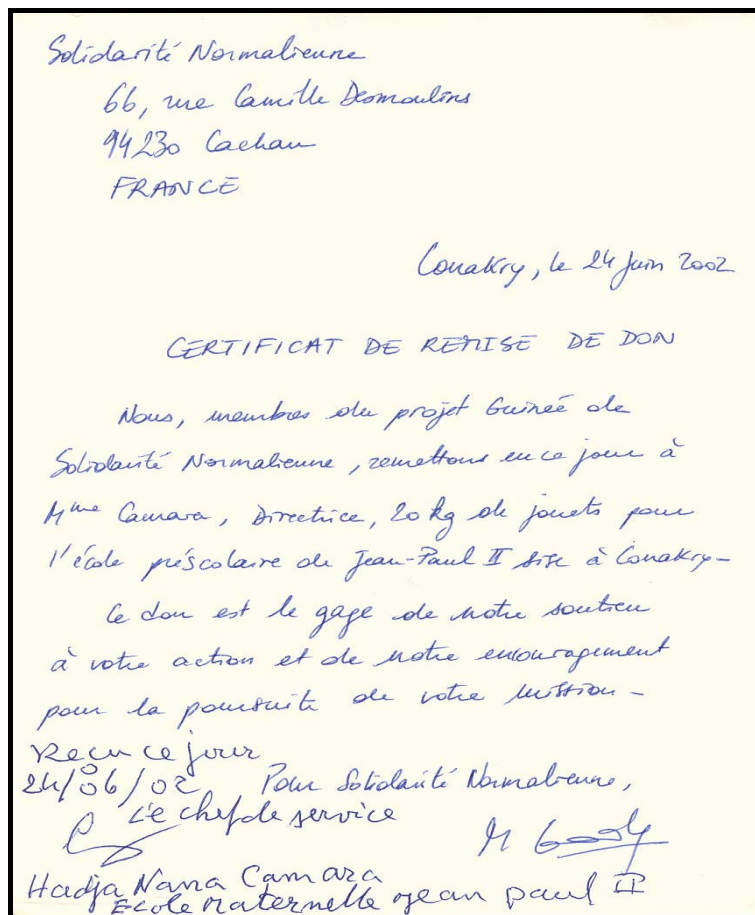 Solidarité Normalienne
66, rue Camille Desmoulins
94230 Cachan
FRANCE
Conakry, le 24 Juin 2002
CERTIFICAT DE REMISE DE DON
Nous, membres du projet Guinée de
Solidarité Normalienne, remettons en ce jour à
Mme Camara, Directrice, 20 kg de jouets pour
l'école préscolaire de Jean-Paul II sise à Conakry-
Ce don est le gage de notre soutien
à votre action et de notre encouragement
pour la poursuite de votre mission-
Recu ce jour
24/06/02 Pour Solidarité Normalienne,
Le chef de service
M
Hadja Nana Camara
Ecole Maternelle Jean paul II